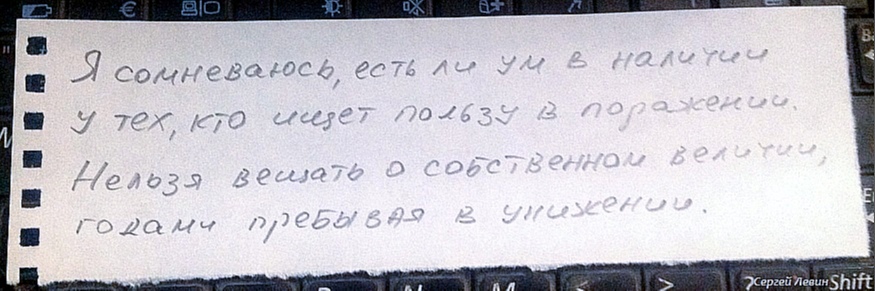 Я сомневаюсь, есть ли ум в наличии
у тех, кто ищет пользу в поражении.
Нельзя вещать о собственном величии,
годами пребывая в унижении.
Сергей Левин
Shift